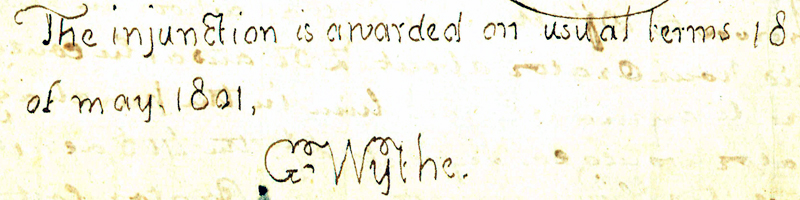 The injunction is awarded on usual terms 18
of may. 1801,
G. Wythe.